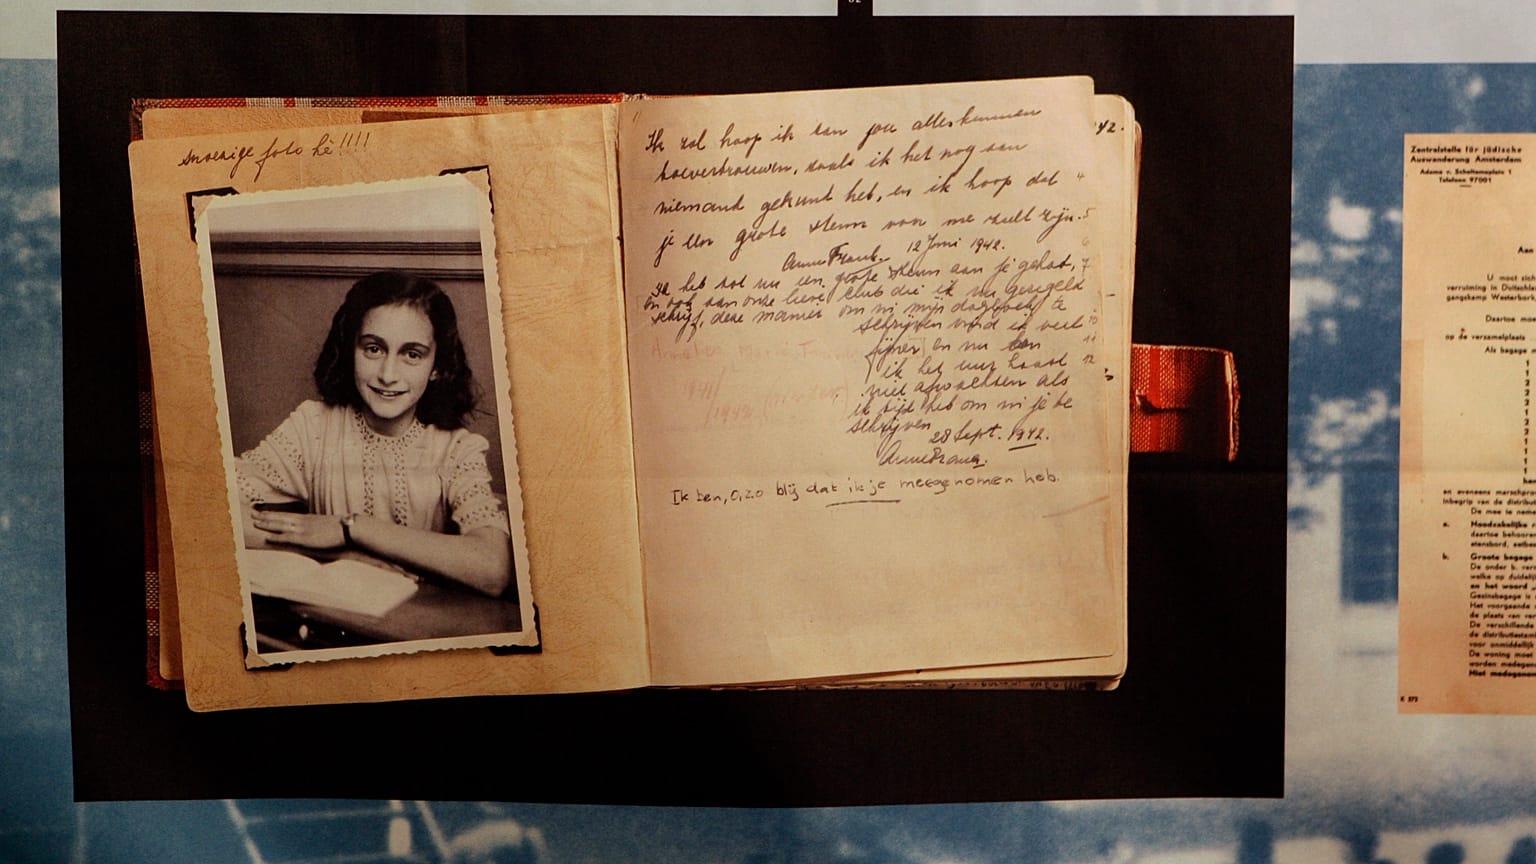 snoezige foto hè!!!!
Ik zal hoop ik aan jou alles kunnen
toevertrouwen, zoals ik het nog aan
niemand gekund heb, en ik hoop dat
je een grote steun voor me zult zijn.
Anne Frank. 12 Juni 1942.
Ik heb tot nu een grote steun aan je gehad,
en ook aan onze lieve club die ik nu geregeld
schrijf, deze manier om in mijn dagboek te
schrijven vind ik veel
fijner en nu kan
ik het uur haast
niet afwachten als
ik tijd heb om in je te
schrijven
28 Sept. 1942.
Anne Frank.
Ik ben, O, zo blij dat ik je meegenomen heb.
42.
Zentralstelle für jüdische
Auswanderung Amsterdam
Adama v. Scheltemaplein 1
Telefoon 97001
Aan
U moet zich
verruiming in Duitschla
gangskamp Westerbork
Daartoe moe
op de verzamelplaats
Als bagage m
en eveneens marschpro
inbegrip van de distribut
De mee te neme
a. Noodzakelijke r
daartoe behooren
b. Groote bagage
De onder b. vers
welke op duidelij
en het woord
Gezinsbagage is
Het voorgaande
de plaats van ver
De verschillende
de distributiestam
voor onmiddellijk
De woning moet
worden medegen
Niet medegenom
K 372